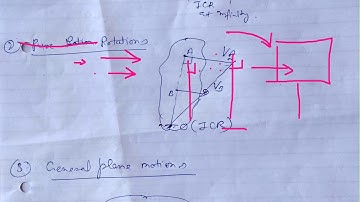 ICR
at infinity.
② Pure Rotations
VA
A
B
VB
(ICR)
③ General plane motions